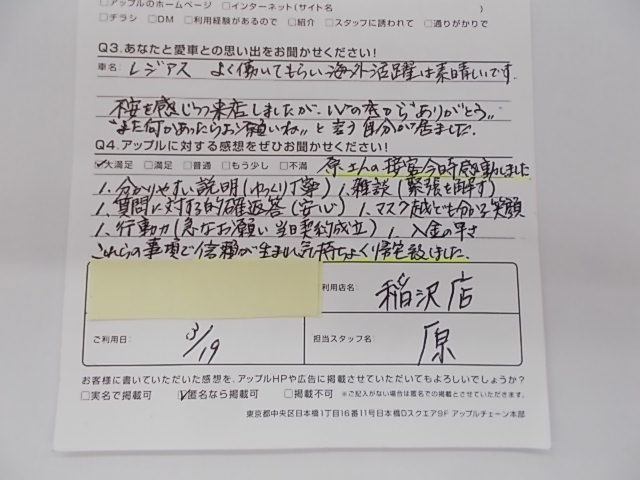 □アップルのホームページ □インターネット(サイト名
□チラシ □DM □利用経験があるので □紹介 □スタッフに誘われて □通りがかりで
Q3.あなたと愛車との思い出をお聞かせください!
車名: レジアス よく働いてもらい海外活躍は素晴しいです.
不安を感じつつ来店しましたが、心の底から"ありがとう"
"また何かあったらお願いね"と言う自分が居ました.
Q4.アップルに対する感想をぜひお聞かせください!
☑大満足 □満足 □普通 □もう少し □不満 原さんの接客今時感動しました
1.分かりやすい説明(ゆっくり丁寧) 1.雑談(緊張を解す)
1.質問に対する的確返答(安心) 1.マスク越でも分かる笑顔
1.行動力(急なお願い当日契約成立) 1.入金の早さ
これらの事項で信頼が生まれ気持ちよく帰宅致しました.
利用店名: 稲沢店
ご利用日: 3/19 担当スタッフ名 原
お客様に書いていただいた感想を、アップルHPや広告に掲載させていただいてもよろしいでしょうか?
□実名で掲載可 ☑匿名なら掲載可 □掲載不可 ※ご記入がない場合は匿名での掲載とさせていただきます.
東京都中央区日本橋1丁目16番11号日本橋Dスクエア9F アップルチェーン本部